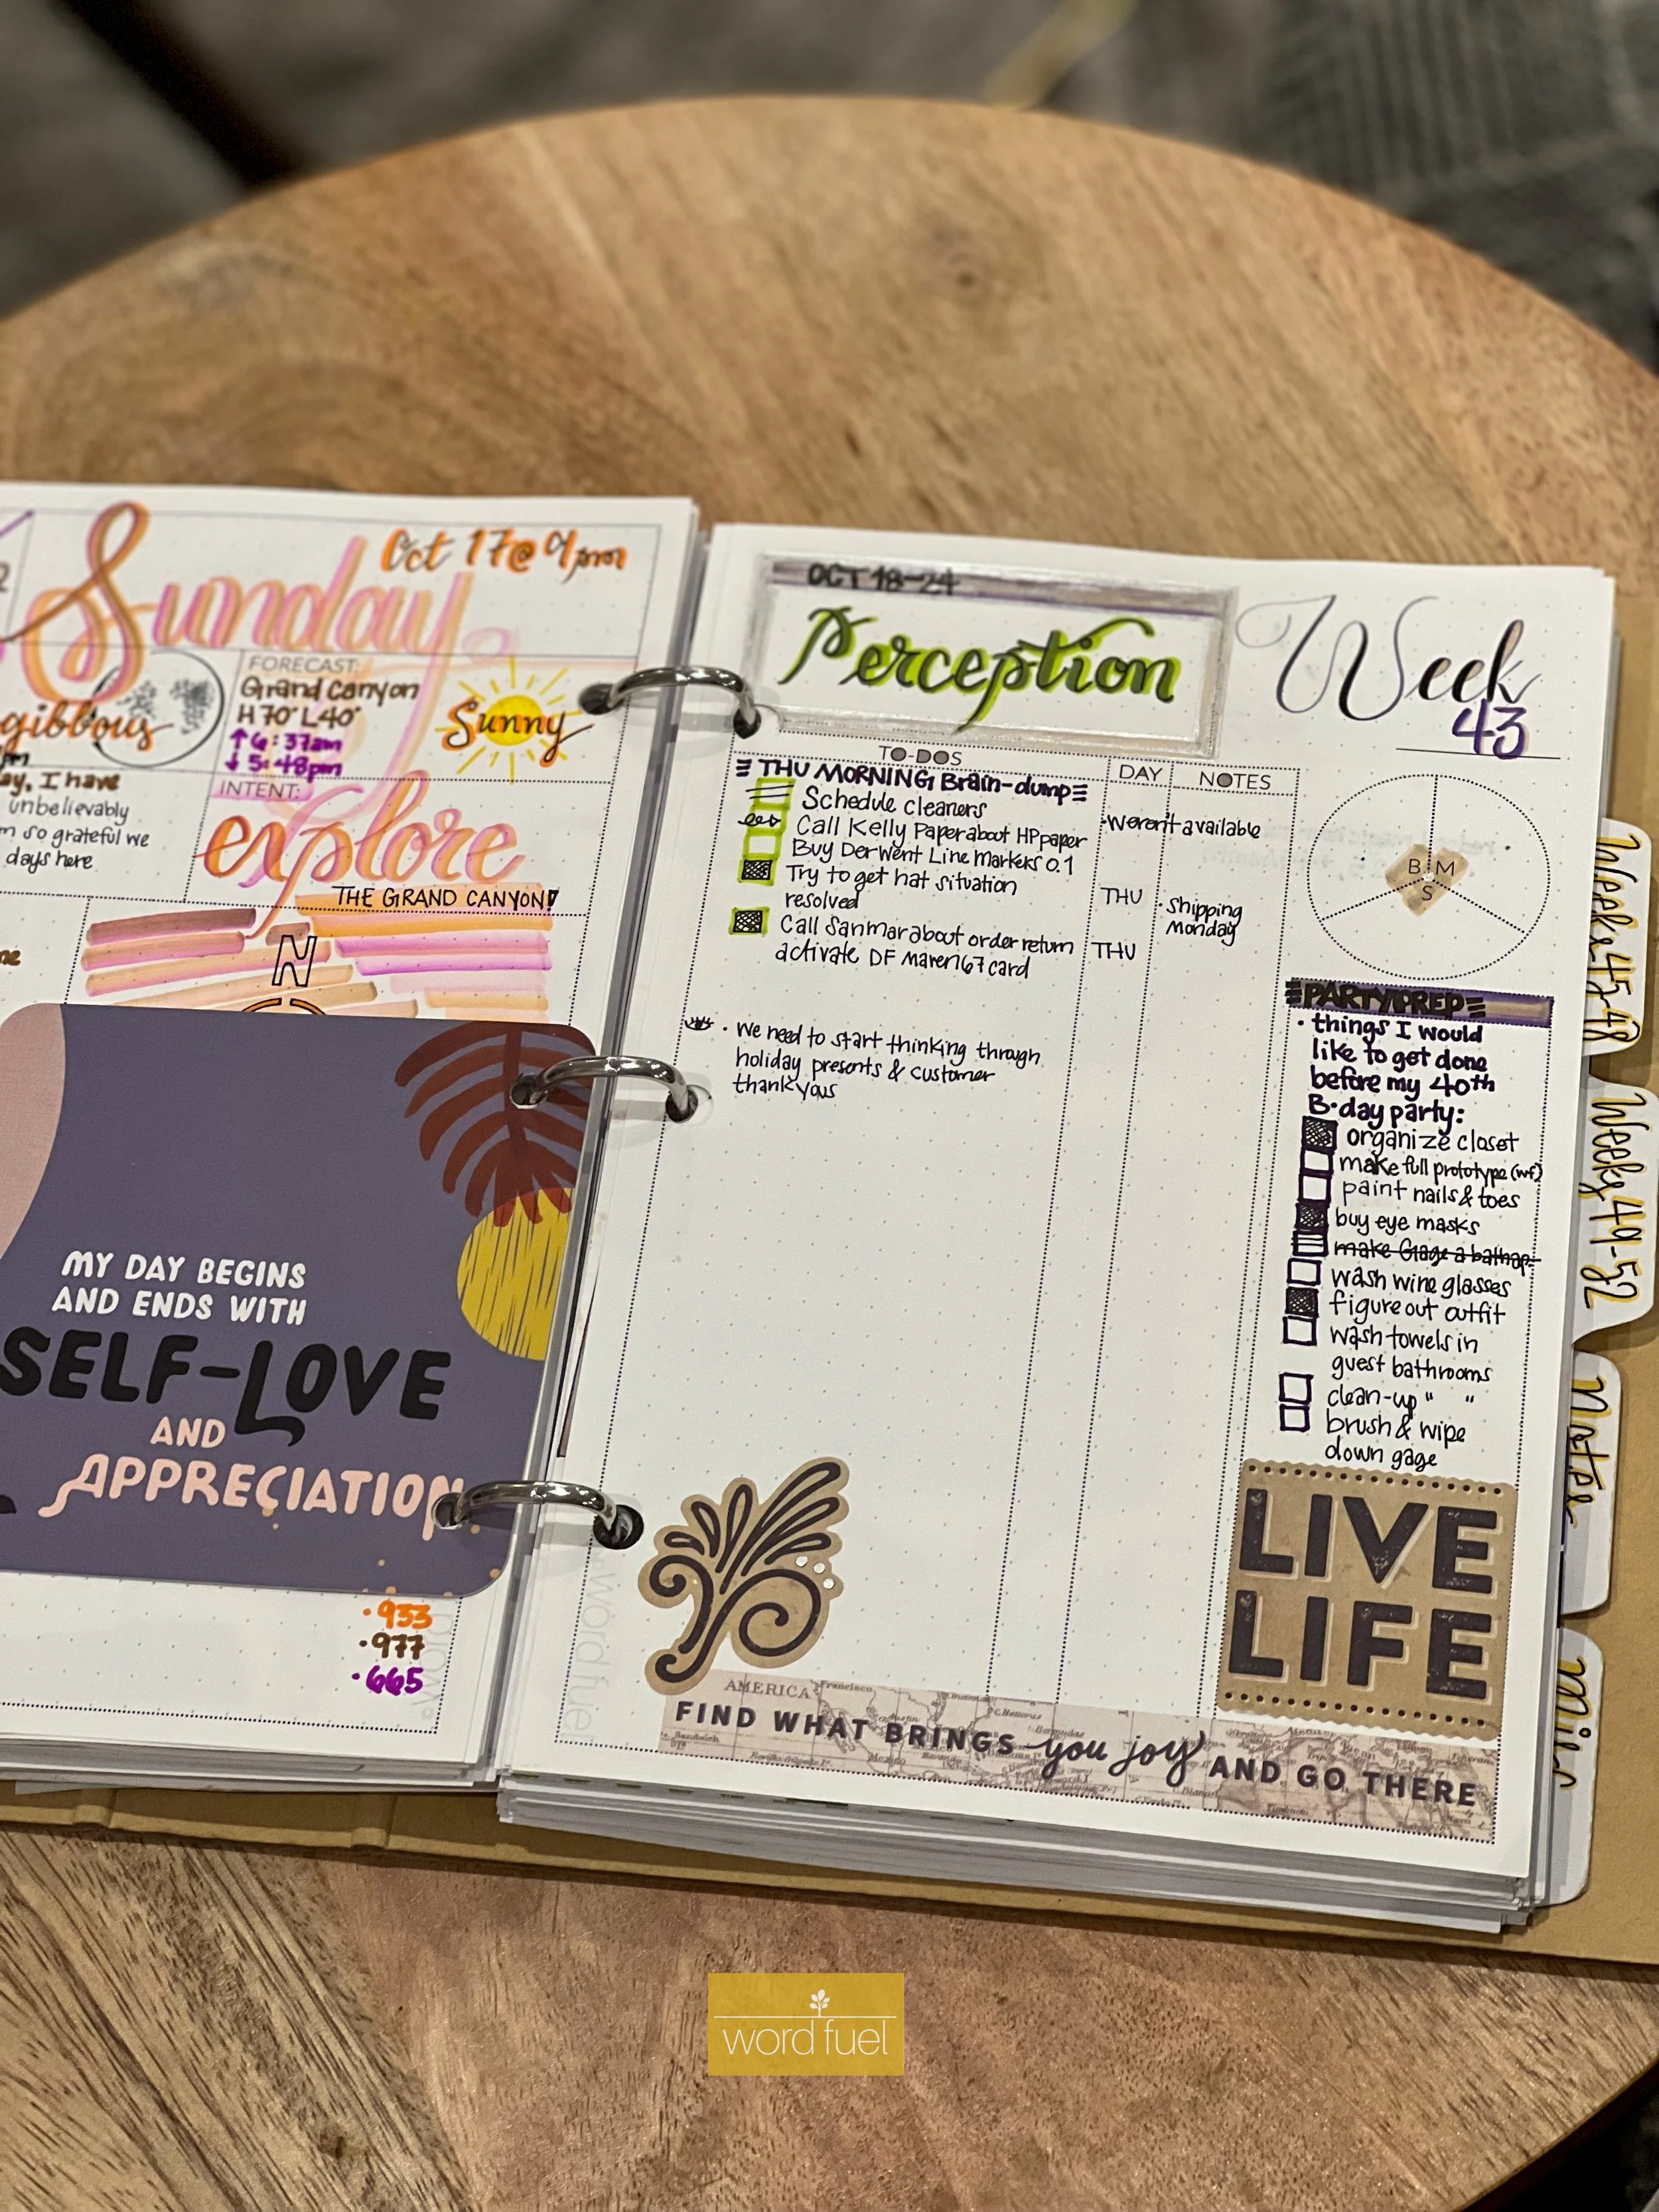 Sunday
Oct 17@9pm
gibbous
FORECAST:
Grand Canyon
H70° L40°
↑6:37am
↓5:48pm
Sunny
ay, I have
unbelievably
m so grateful we
days here
INTENT:
explore
THE GRAND CANYON!
N
MY DAY BEGINS
AND ENDS WITH
SELF-LOVE
AND
APPRECIATION
• 933
• 977
• 665
OCT 18-24
Perception
Week
43
TO-DOS
DAY
NOTES
THU MORNING Brain-dump
Schedule cleaners
• weren't available
Call Kelly Paper about HP paper
Buy Derwent Line Markers 0.1
Try to get hat situation
resolved
THU
• Shipping
Monday
Call Sanmar about order return
THU
activate DF Maren67 card
• We need to start thinking through
holiday presents & customer
thankyous
B M
S
PARTY PREP
• things I would
like to get done
before my 40th
B-day party:
organize closet
make full prototype (wf)
paint nails & toes
buy eye masks
make Gage a bathap.
wash wine glasses
figure out outfit
wash towels in
guest bathrooms
clean-up " "
brush & wipe
down gage
LIVE
LIFE
AMERICA
FIND WHAT BRINGS you joy AND GO THERE
word fuel
Weeks 45-48
Weeks 49-52
Notes
Misc
word fuel